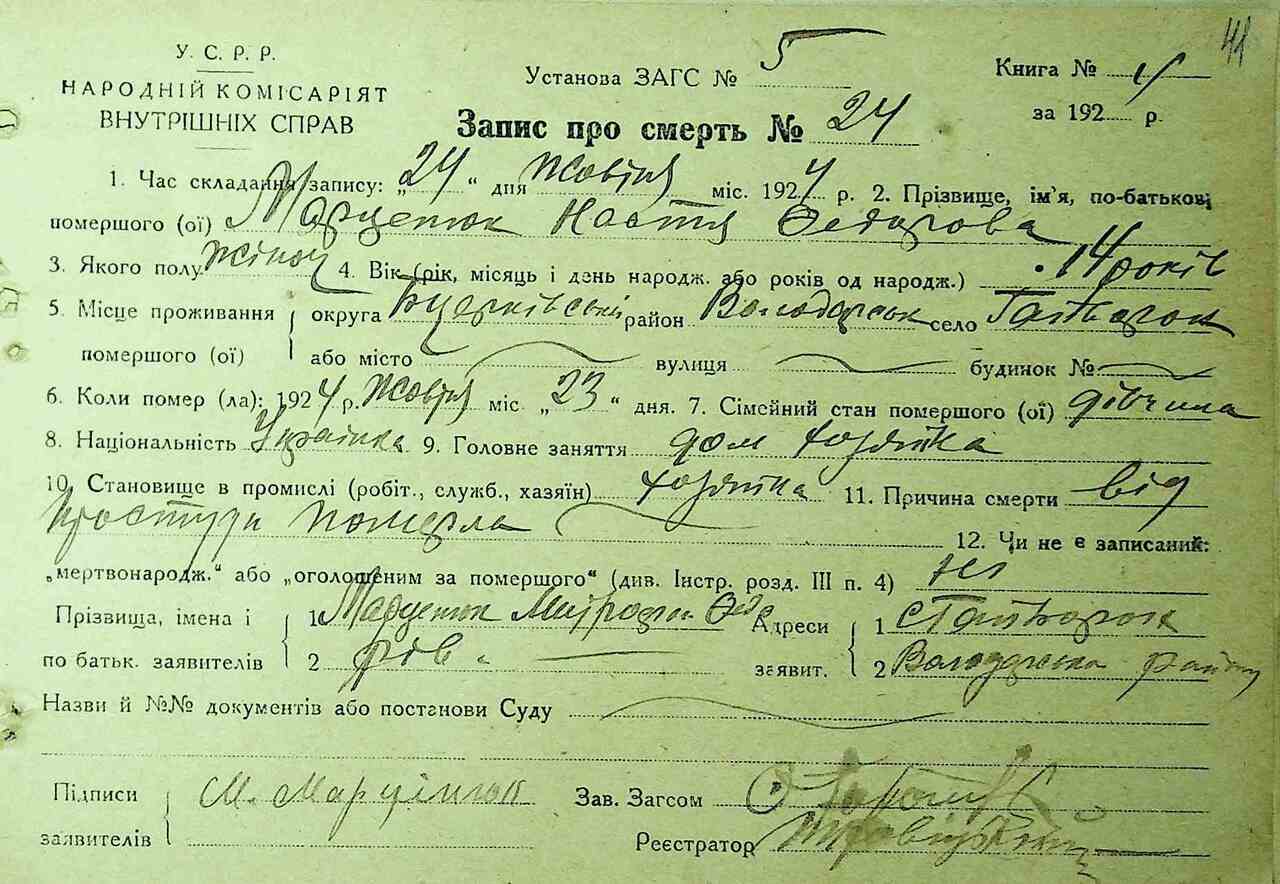 41
У. С. Р. Р.
НАРОДНІЙ КОМІСАРІЯТ
ВНУТРІШНІХ СПРАВ
Установа ЗАГС № 5
Книга №
за 192 р.
Запис про смерть № 24
1. Час складання запису: „24“ дня Жовтня міс. 1924 р. 2. Прізвище, ім'я, по-батькові
помершого (ої) Марценюк Настя Федорова
3. Якого полу Жіноч 4. Вік (рік, місяць і день народж. або років од народж.) 14 років
5. Місце проживання помершого (ої) округа Бцерківській район Володарськ село Гайворон
або місто вулиця будинок №
6. Коли помер (ла): 1924 р. Жовтня міс. „23“ дня. 7. Сімейний стан помершого (ої) дівчина
8. Національність Українка 9. Головне заняття дом хозяйка
10. Становище в промислі (робіт., служб., хазяїн) хозяйка 11. Причина смерти від
простуди померла 12. Чи не є записаний:
„мертвонародж.“ або „оголошеним за помершого“ (див. Інстр. розд. III п. 4)
Прізвища, імена і по батьк. заявителів 1 Марценюк Митрофан Федо Адреси заявит. 1 с Гайворон
2 ров. 2 Володарська району
Назви й №№ документів або постанови Суду
Підписи заявителів М. Марцінюк Зав. Загсом
Реєстратор